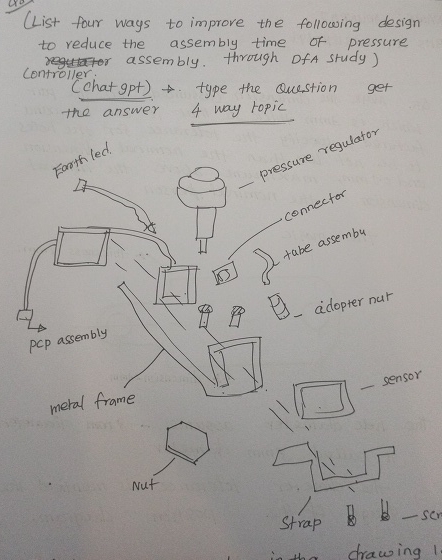 (List four ways to improve the following design
to reduce the assembly time of pressure
regulator assembly. through DfA study)
Controller.
(Chat gpt) → type the Question get
the answer 4 way topic
Earth led.
pressure regulator
connector
tube assembu
adopter nut
pcp assembly
sensor
metal frame
Nut
Strap